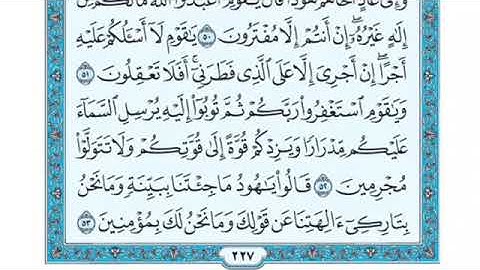 وَإِلَىٰ عَادٍ أَخَاهُمْ هُودًا قَالَ يَٰقَوْمِ ٱعْبُدُوا۟ ٱللَّهَ مَا لَكُم مِّنْ
إِلَٰهٍ غَيْرُهُۥٓ إِنْ أَنتُمْ إِلَّا مُفْتَرُونَ ٥٠ يَٰقَوْمِ لَآ أَسْـَٔلُكُمْ عَلَيْهِ
أَجْرًا إِنْ أَجْرِىَ إِلَّا عَلَى ٱلَّذِى فَطَرَنِىٓ أَفَلَا تَعْقِلُونَ ٥١
وَيَٰقَوْمِ ٱسْتَغْفِرُوا۟ رَبَّكُمْ ثُمَّ تُوبُوٓا۟ إِلَيْهِ يُرْسِلِ ٱلسَّمَآءَ
عَلَيْكُم مِّدْرَارًا وَيَزِدْكُمْ قُوَّةً إِلَىٰ قُوَّتِكُمْ وَلَا تَتَوَلَّوْا۟
مُجْرِمِينَ ٥٢ قَالُوا۟ يَٰهُودُ مَا جِئْتَنَا بِبَيِّنَةٍ وَمَا نَحْنُ
بِتَارِكِىٓ ءَالِهَتِنَا عَن قَوْلِكَ وَمَا نَحْنُ لَكَ بِمُؤْمِنِينَ ٥٣
٢٢٧